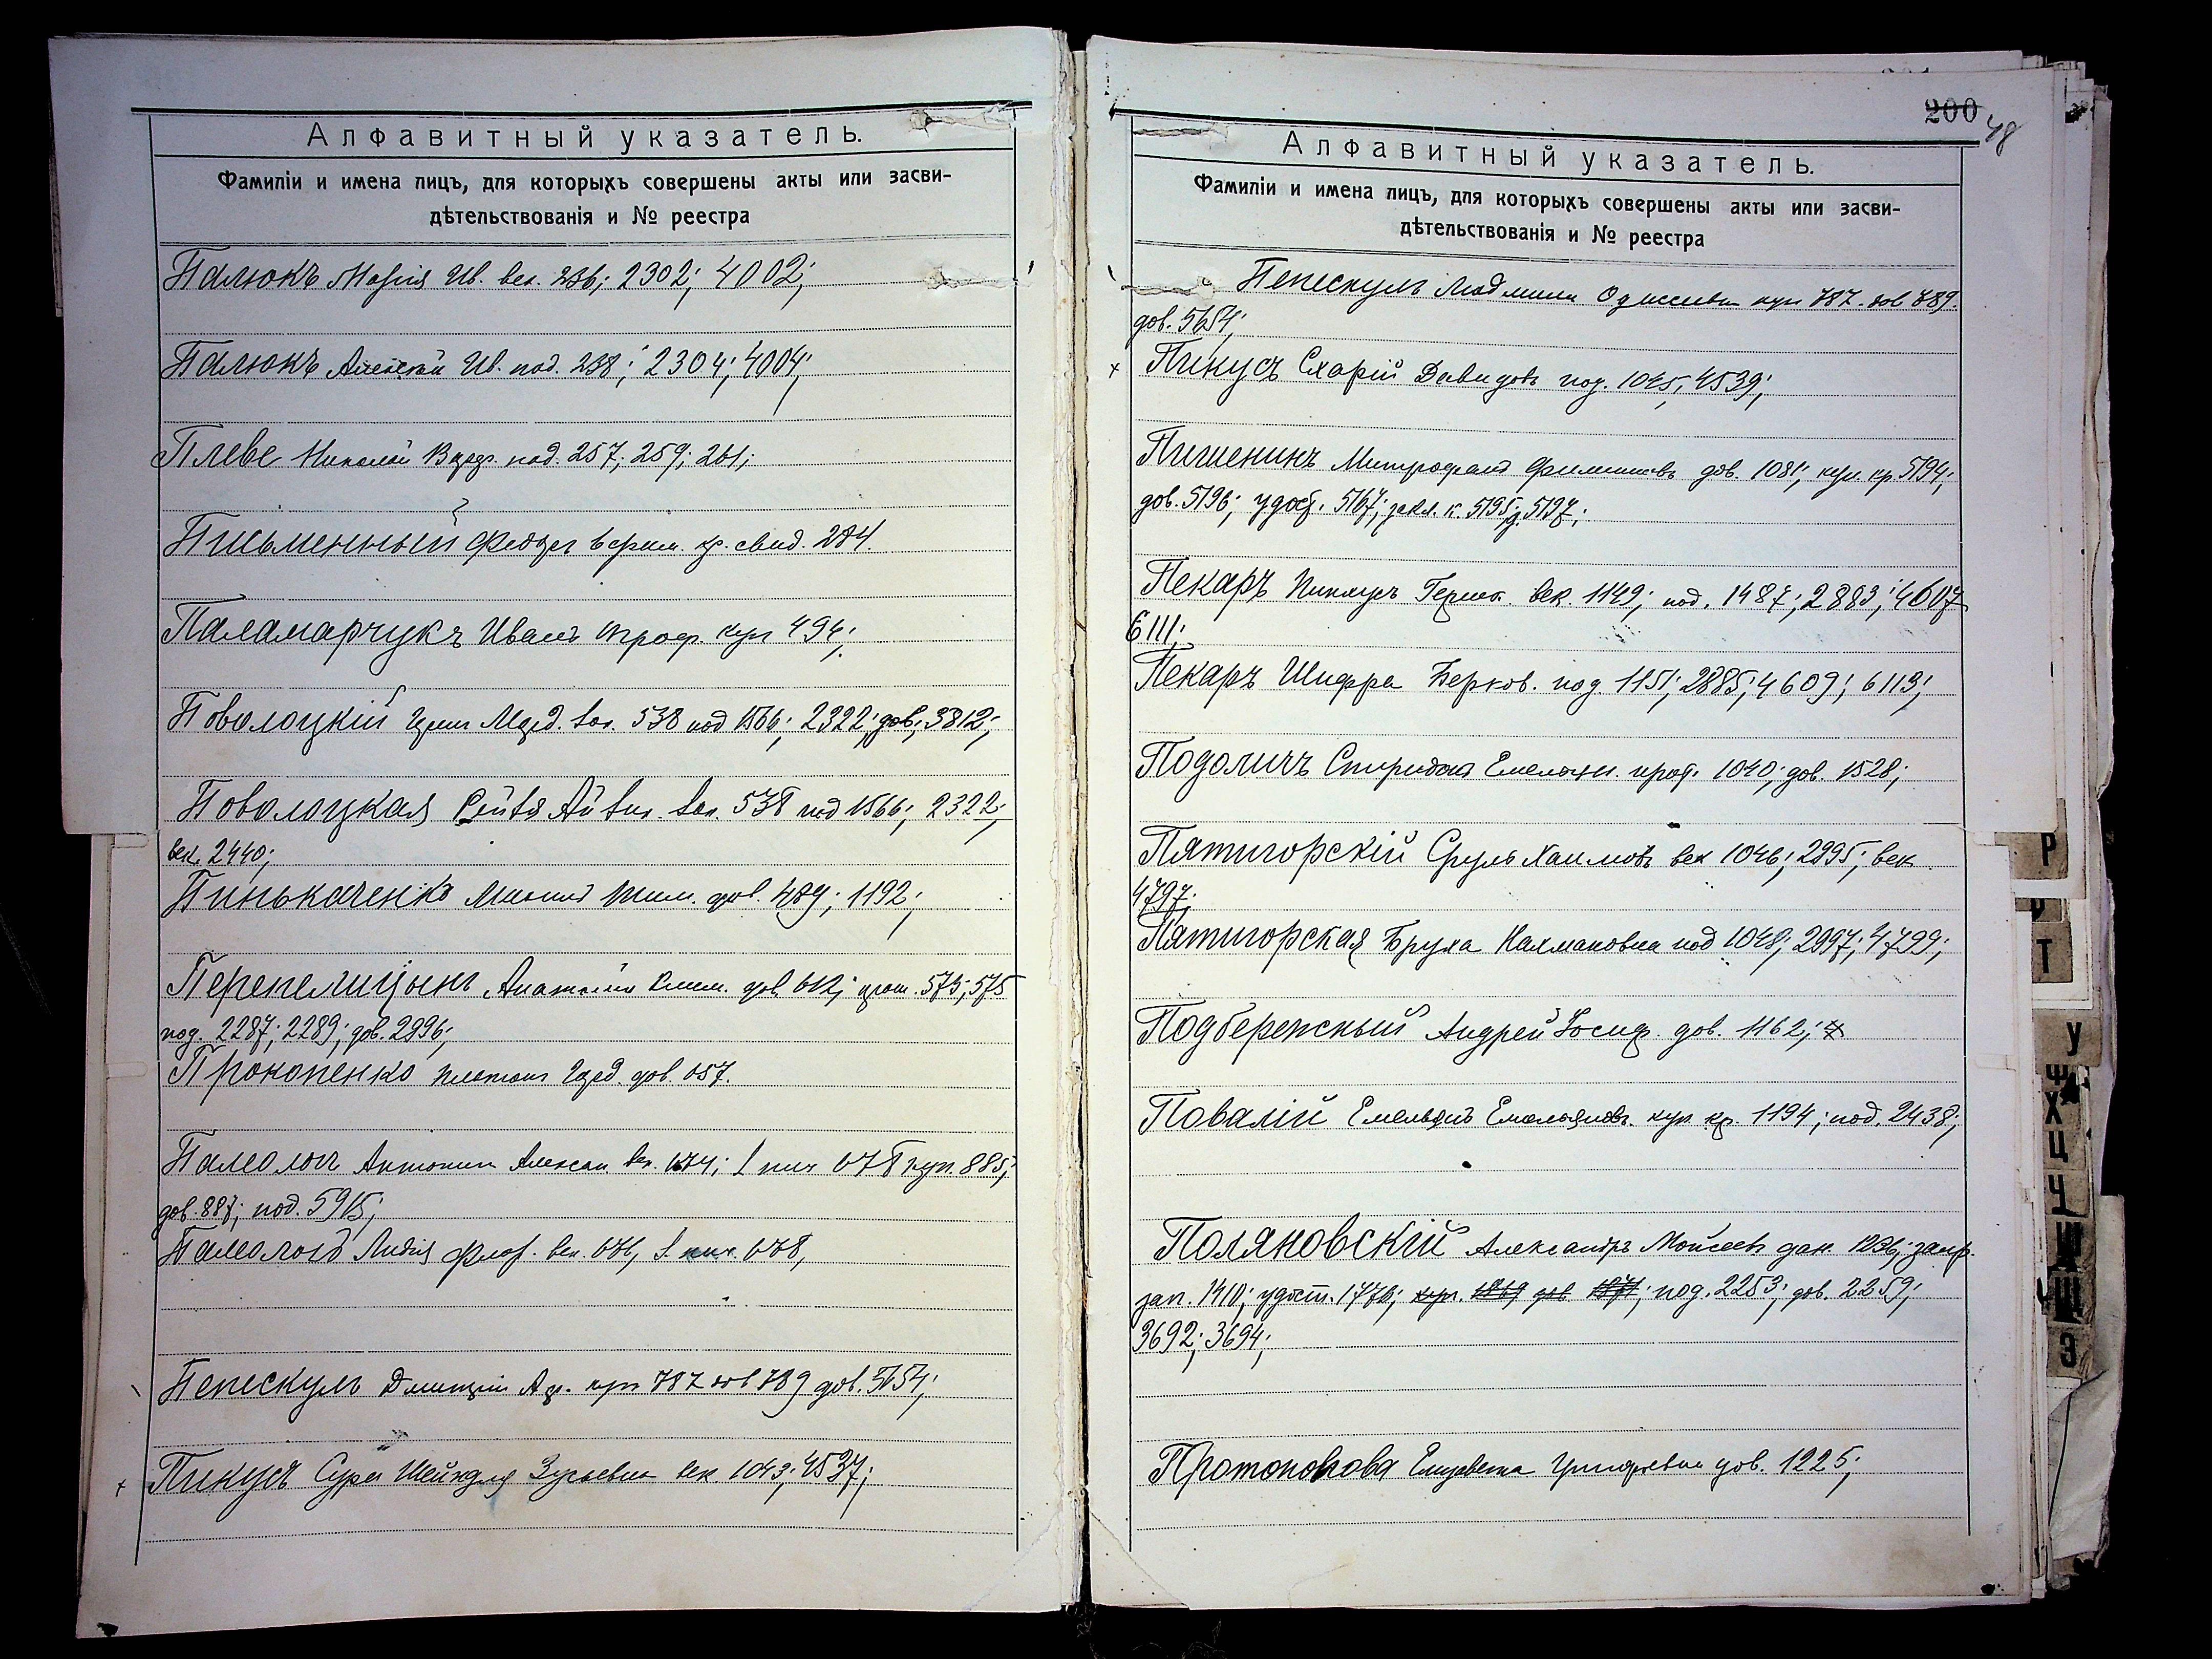 Алфавитный указатель.
Фамиліи и имена лицъ, для которыхъ совершены акты или засви-
дѣтельствованія и № реестра
Палюкъ Марія Ив. век. 236; 2302; 4002;
Палюкъ Алексѣй Ив. под. 238; 2304; 4004;
Плеве Николай под. 257; 259; 261;
Письменный Федоръ свид. 284.
Паламарчукъ Иванъ Троф. куп 494;
Поволоцкій Мерд. век. 538 под 1566; 2322; дов; 3812;
Поволоцкая Рейвя век. 538 под 1566; 2322;
век. 2440;
Пинькаченко дов. 489; 1192;
Перепелицынъ Анатолій Клим. дов. 612; прот. 573; 575
под. 2287; 2289; дов. 2896;
Прокопенко Платонъ дов. 657.
Памологъ Антонин Алексан век. 674; 678 куп. 885;
дов. 887; под. 5915;
Памологъ Лидія Флор. век. 676, 678,
Пепескулъ Дмитрій куп 787 дов 789 дов. 5654;
Пикусъ Сура Шейндля Зусьевна век. 1043; 4537;
200
48
Алфавитный указатель.
Фамиліи и имена лицъ, для которыхъ совершены акты или засви-
дѣтельствованія и № реестра
Пепескулъ Людмила Одиссеевна куп 787. дов 789.
дов. 5654;
Пикусъ Схарій Давидовъ под. 1045; 4539;
Пигиенинъ Митрофанъ Филипповъ дов. 1081; куп. кр. 5194;
дов. 5196; удост. 5167; закл. к. 5195; 5197;
Пекаръ Пинкусъ Гершк. век. 1149; под. 1487; 2883; 4607
6111;
Пекаръ Шифра Берков. под. 1151; 2885; 4609; 6113;
Подоличъ Спиридонъ Емельян. прот. 1040; дов. 1528;
Пятигорскій Сруль Хаимовъ век 1046; 2995; век
4797;
Пятигорская Бруха Калмановна под 1048; 2997; 4799;
Подбережный Андрей Іосиф. дов. 1162;
Повалій Емельянъ Емельяновъ. куп. кр. 1194; под. 2438;
Поляновскій Александръ Моисеевъ дан. 1236; запр.
зап. 1410; удост. 1776; куп. 1869 дов 1871; под. 2253; дов. 2259;
3692; 3694;
Протопопова Елизавета Григорьевна дов. 1225;
Р
Т
У
Ф
Х
Ц
Ч
Ш
Щ
Э